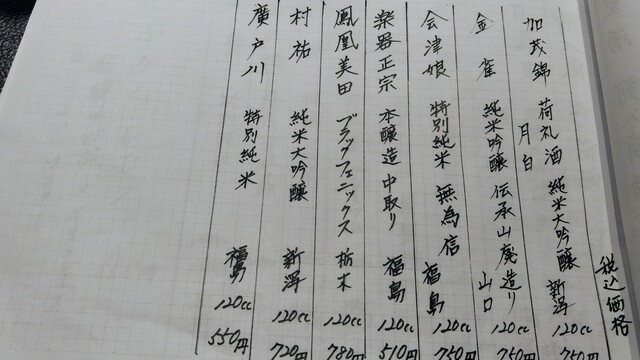 税込価格
加茂錦 荷札酒 純米大吟醸 新潟 120cc 750円
月白
金雀 純米吟醸 伝承山廃造り 山口 120cc 750円
会津娘 特別純米 無為信 福島 120cc 750円
楽器正宗 本醸造 中取り 福島 120cc 510円
鳳凰美田 ブラックフェニックス 栃木 120cc 780円
村祐 純米大吟醸 新潟 120cc 720円
廣戸川 特別純米 福島 120cc 550円